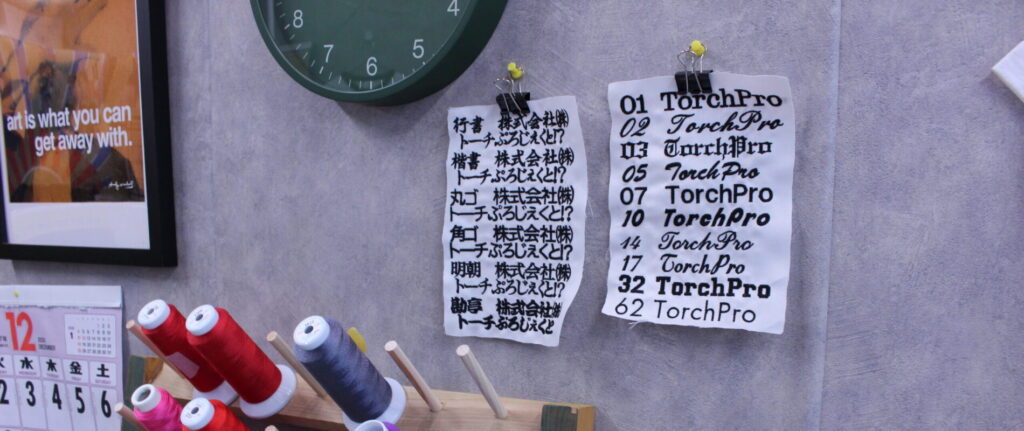 art is what you can
get away with.
8 7 6 5 4
行書 株式会社㈱
トーチぷろじぇくと!?
楷書 株式会社㈱
トーチぷろじぇくと!?
丸ゴ 株式会社㈱
トーチぷろじぇくと!?
角ゴ 株式会社㈱
トーチぷろじぇくと!?
明朝 株式会社㈱
トーチぷろじぇくと!?
勘亭 株式会社㈱
トーチぷろじぇくと
01 TorchPro
02 TorchPro
03 TorchPro
05 TorchPro
07 TorchPro
10 TorchPro
14 TorchPro
17 TorchPro
32 TorchPro
62 TorchPro
12
水 木 金 土
2 3 4 5 6